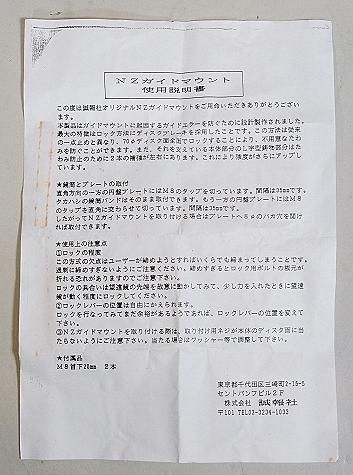 ＮＺガイドマウント
使用説明書
この度は誠報社オリジナルＮＺガイドマウントをご用命いただきありがとうござい
ます。
本製品はガイドマウントに起因するガイドエラーを防ぐために設計製作されました。
最大の特徴はロック方法にディスクブレーキを採用したことです。この方法は従来
の一点止めと異なり、７０φディスク面全面でロックすることにより、不用意なたわ
みを防ぐことができます。また、それを支えている本体部分のＬ字型鋳物部分はた
わみ防止のために２本の補強が左右にあります。これにより強度がさらにアップし
ています。
★鏡筒とプレートの取付
直角方向の一方の円盤プレートにはＭ８のタップを切っています。間隔は35mmです。
タカハシの鏡筒バンドはそのまま取付できます。もう一方の円盤プレートにはＭ８
のタップを直角に変わらせて切っています。間隔は35mmです。
したがってＮＺガイドマウントを取り付ける場合はプレートへ８φのバカ穴を開け
れば取付できます。
★使用上の注意点
①ロックの程度
この方式の欠点はユーザーが締めようとすればいくらでも締まってしまうことです。
過剰に締めすぎないようにご注意ください。締めすぎるとロック用ボルトの根元が
折れる恐れがありますのでご注意下さい。
ロックの具合いは望遠鏡の先端を故意に動かしてみて、少し力を入れたときに望遠
鏡が動く程度にロックしてください。
②ロックレバーの位置は自由にかえられます。
ロックを行なってみてまだ余裕があるようであれば、ロックレバーの位置を変えて
下さい。
③ＮＺガイドマウントを取り付ける際は、取り付け用ネジが本体のディスク面に当
たらないようにご注意下さい。当たる場合はワッシャー等で調整して下さい。
★付属品
Ｍ８首下20mm　２本
東京都千代田区三崎町2-15-5
セントバンフビル２Ｆ
株式会社　誠報社
〒101 TEL03-3234-1033